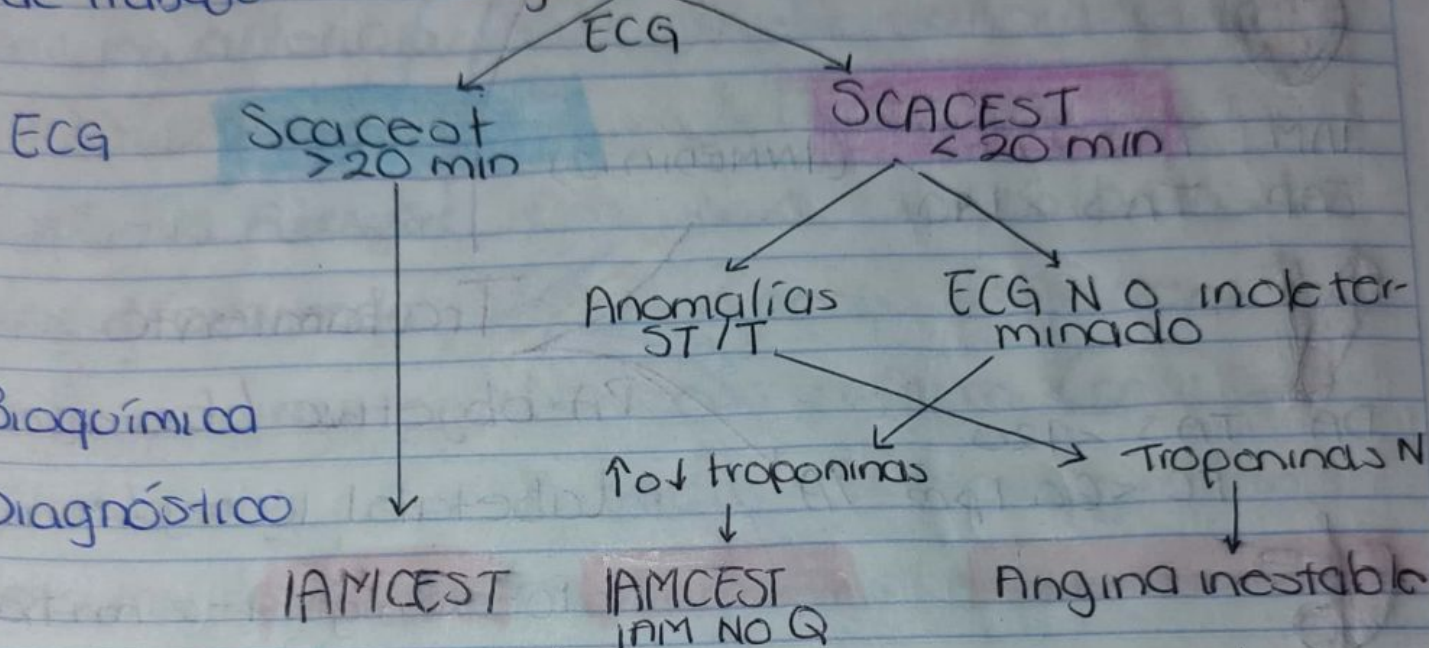 ECG
ECG
Scaceot
>20 min
SCACEST
< 20 min
Anomalías
ST/T
ECG N O inoleter-
minado
Bioquímica
↑o↓ troponinas
Troponinas N
Diagnóstico
IAMCEST
IAMCEST
IAM NO Q
Angina inestable